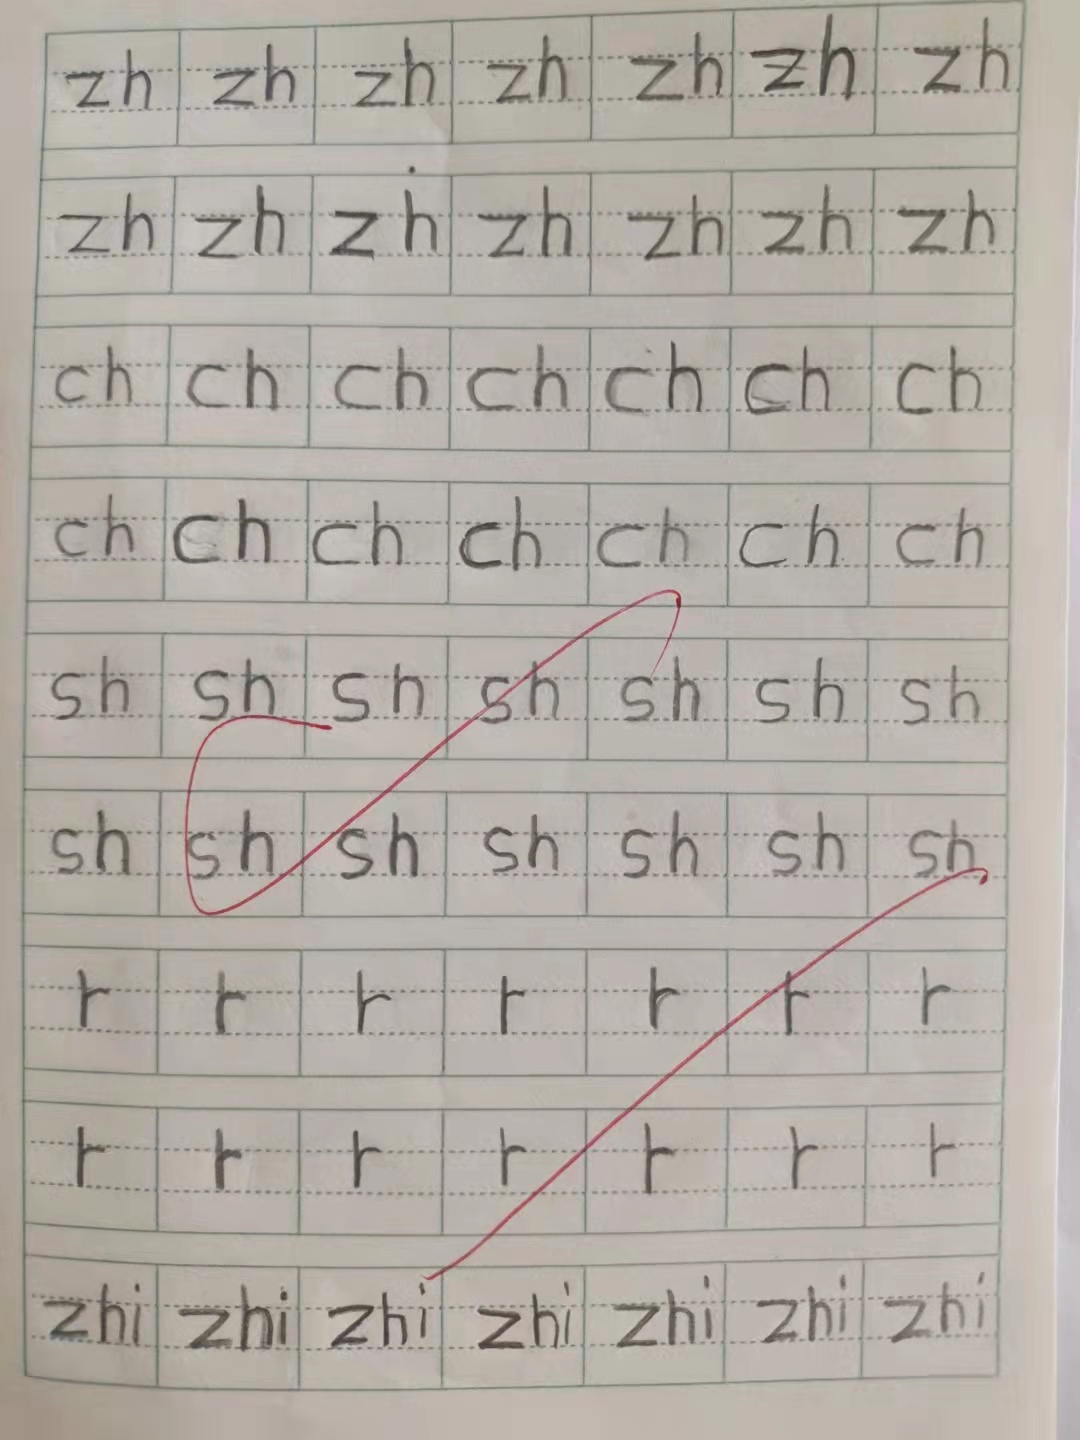 zh zh zh zh zh zh zh
zh zh zh zh zh zh zh
ch ch ch ch ch ch ch
ch ch ch ch ch ch ch
sh sh sh sh sh sh sh
sh sh sh sh sh sh sh
r r r r r r r
r r r r r r r
zhi zhi zhi zhi zhi zhi zhi